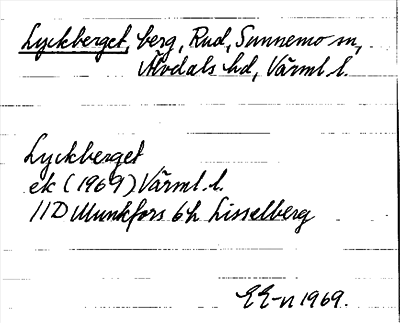 Lyckberget, berg, Rud, Sunnemo sn,
Älvdals hd, Värml. l.
Lyckberget
ek (1969) Värml. l.
11D Munkfors 6h Lisselberg
EE-n 1969.